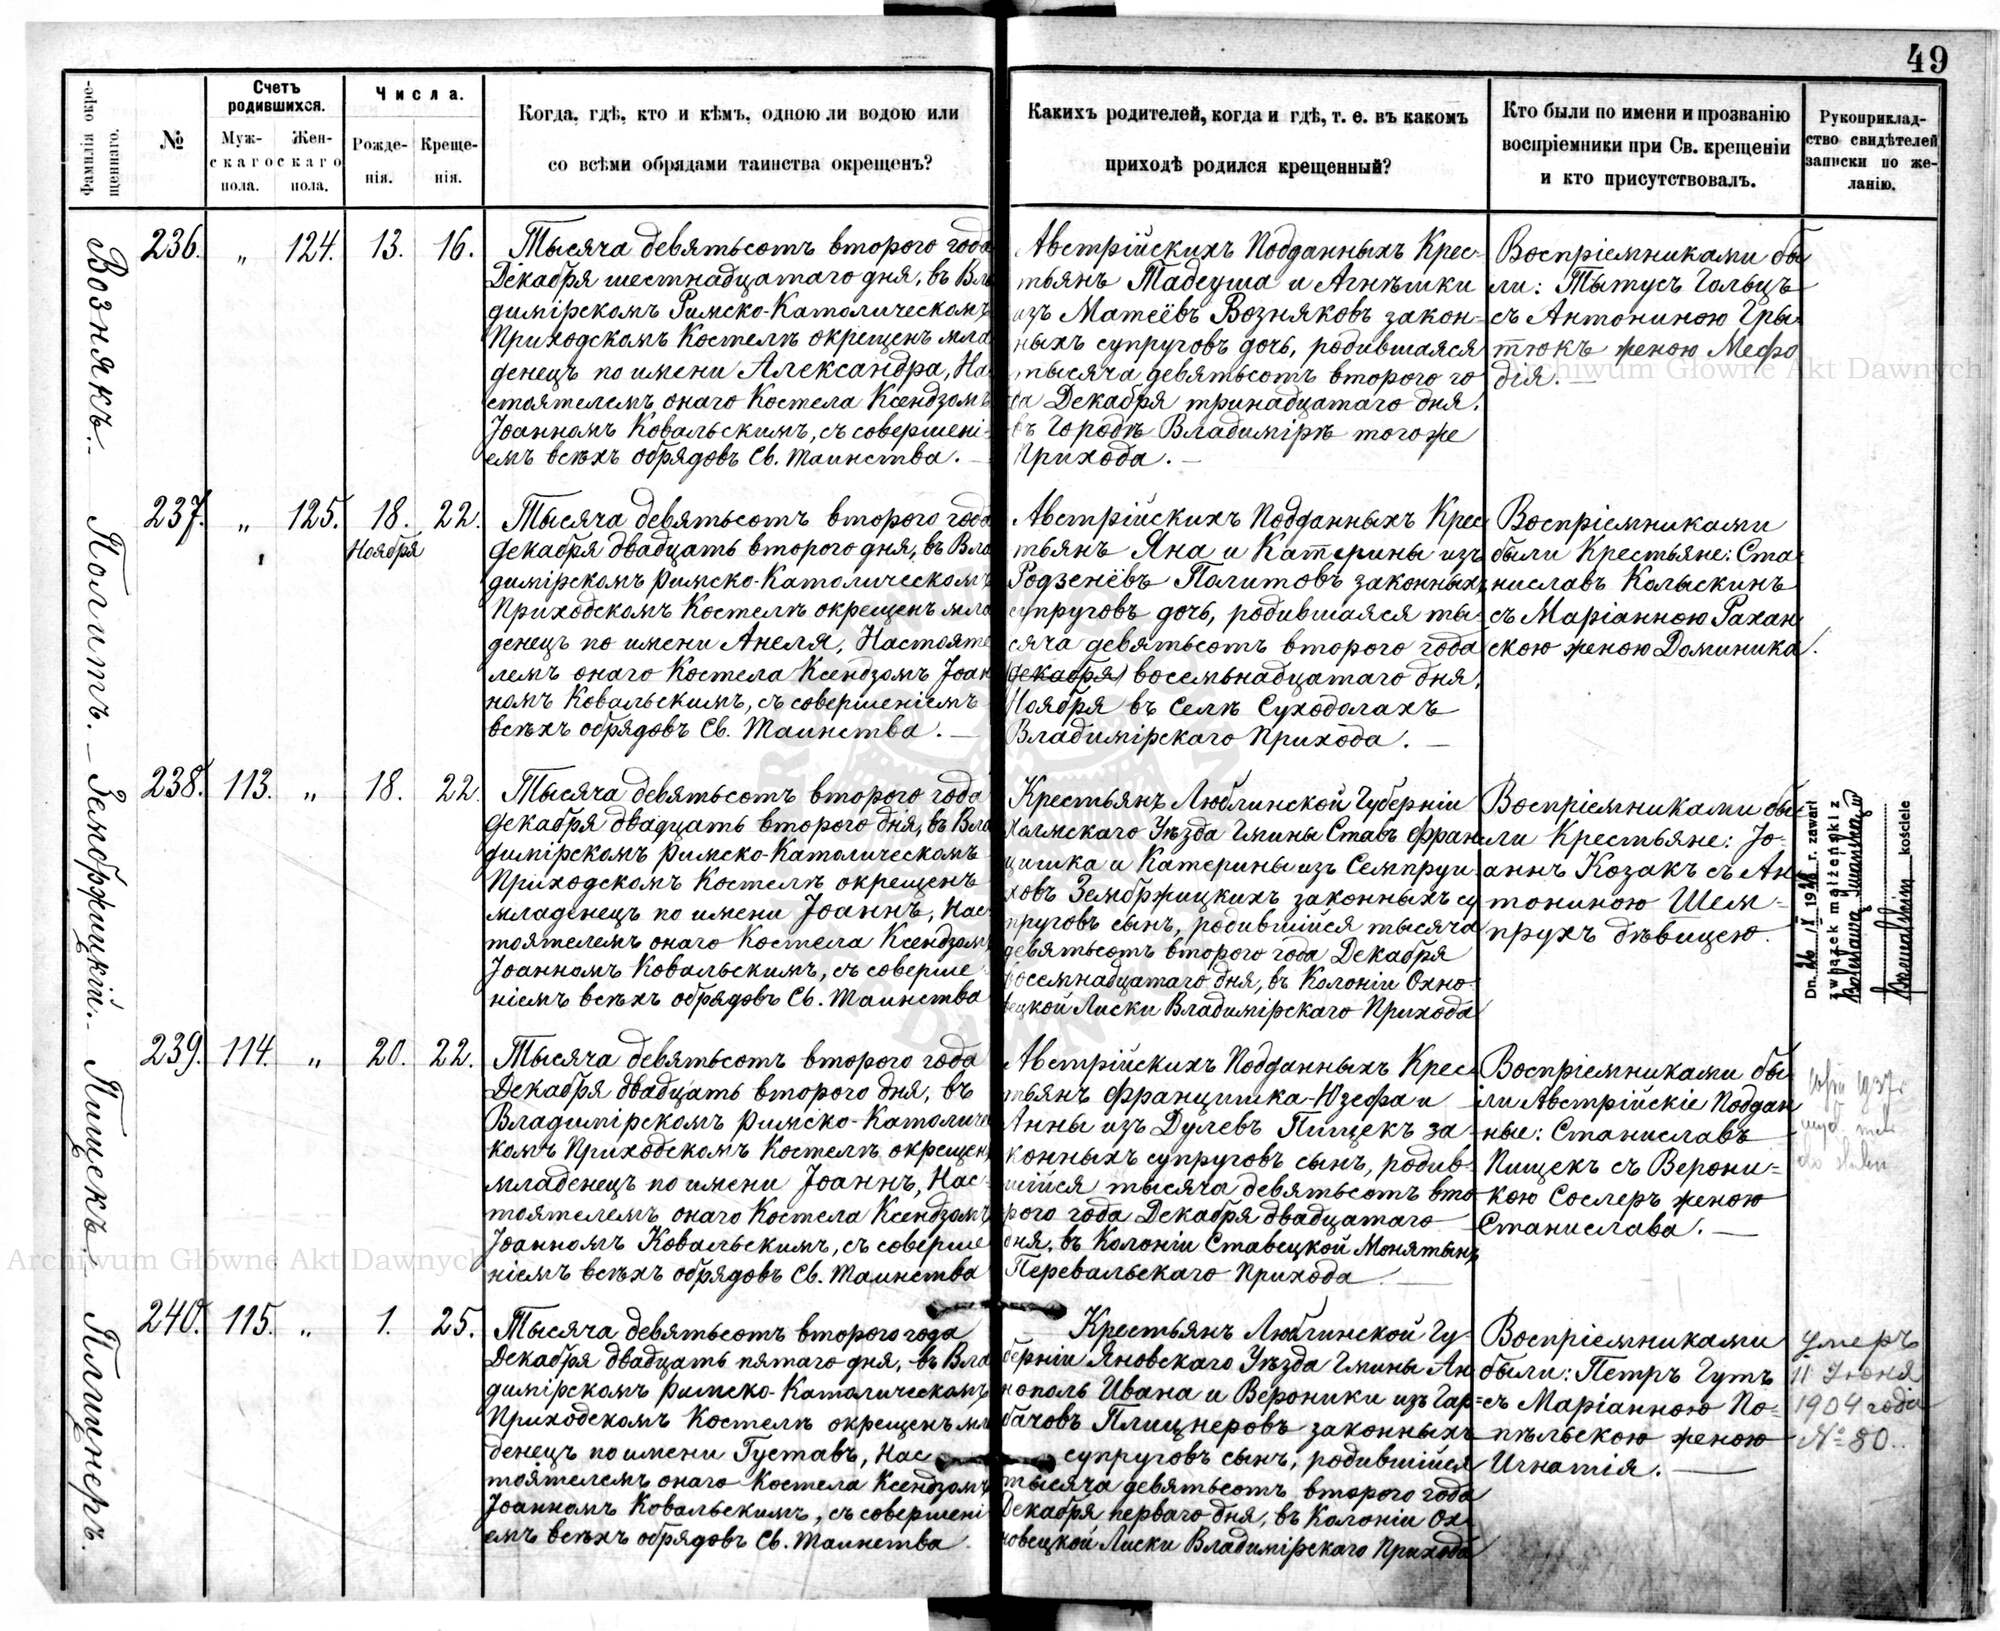 49
Фамилія окре-
щеннаго.
№
Счетъ
родившихся.
Муж-
скаго
пола.
Жен-
скаго
пола.
Числа.
Рожде-
нія.
Креще-
нія.
Когда, гдѣ, кто и кѣмъ, одною ли водою или
со всѣми обрядами таинства окрещенъ?
Какихъ родителей, когда и гдѣ, т. е. въ какомъ
приходѣ родился крещенный?
Кто были по имени и прозванію
воспріемники при Св. крещеніи
и кто присутствовалъ.
Рукоприклад-
ство свидѣтелей
записки по же-
ланію.
Вознякъ.
236. " 124. 13. 16.
Тысяча девятьсотъ второго года
Декабря шестнадцатаго дня, въ Вла
димірскомъ Римско-Католическомъ
Приходскомъ Костелѣ окрещенъ мла
денецъ по имени Александра, На
стоятелемъ онаго Костела Ксендзомъ
Іоанномъ Ковальскимъ, съ совершені-
емъ всѣхъ обрядовъ Св. Таинства. —
Австрійскихъ Подданныхъ Крес-
тьянъ Тадеуша и Агнѣшки
изъ Матеёвъ Возняковъ закон-
ныхъ супруговъ дочь, родившаяся
тысяча девятьсотъ второго го
да Декабря тринадцатаго дня,
въ Городѣ Владимірѣ того же
Прихода. —
Воспріемниками бы
ли: Тытусъ Гольцъ
съ Антониною Гры
тюкъ женою Мефо
дія. —
Политъ. —
237. " 125. 18. 22.
Ноября
Тысяча девятьсотъ второго года
Декабря двадцать второго дня, въ Вла
димірскомъ Римско-Католическомъ
Приходскомъ Костелѣ окрещенъ мла
денецъ по имени Анеля, Настояте
лемъ онаго Костела Ксендзомъ Іоан
номъ Ковальскимъ, съ совершеніемъ
всѣхъ обрядовъ Св. Таинства. —
Австрійскихъ Подданныхъ Крес
тьянъ Яна и Катерины изъ
Родзенёвъ Политовъ законныхъ
супруговъ дочь, родившаяся ты-
сяча девятьсотъ второго года
(декабря) восемьнадцатаго дня,
Ноября въ Селѣ Суходолахъ
Владимірскаго Прихода. —
Воспріемниками
были Крестьяне: Ста-
ниславъ Колыскинъ
съ Маріанною Рахан
скою женою Доминика.
Земобржицкій. —
238. 113. " 18. 22.
Тысяча девятьсотъ второго года
Декабря двадцать второго дня, въ Вла
димірскомъ Римско-Католическомъ
Приходскомъ Костелѣ окрещенъ
младенецъ по имени Іоаннъ, Нас-
тоятелемъ онаго Костела Ксендзомъ
Іоанномъ Ковальскимъ, съ соверше
ніемъ всѣхъ обрядовъ Св. Таинства
Крестьянъ Люблинской Губерніи
Холмскаго Уѣзда Гмины Ставъ Фран
цишка и Катерины изъ Семпрух
ховъ Земобржицкихъ законныхъ су
пруговъ сынъ, родившійся тысяча
девятьсотъ второго года Декабря
восемнадцатаго дня, въ Колоніи Охно-
вецкой Лиски Владимірскаго Прихода
Воспріемниками бы
ли Крестьяне: Іо-
аннъ Козакъ съ Ан
тониною Шем-
прухъ дѣвицею.
Dn. 26 IV 1928 r. zawarł
związek małżeński z
kościele
Пищекъ —
239. 114. " 20. 22.
Тысяча девятьсотъ второго года
Декабря двадцать второго дня, въ
Владимірскомъ Римско-Католичес
комъ Приходскомъ Костелѣ окрещенъ
младенецъ по имени Іоаннъ, Нас-
тоятелемъ онаго Костела Ксендзомъ
Іоанномъ Ковальскимъ, съ соверше
ніемъ всѣхъ обрядовъ Св. Таинства
Австрійскихъ Подданныхъ Крес-
тьянъ Францишка-Юзефа и
Анны изъ Дулевъ Пищекъ за
конныхъ супруговъ сынъ, родив-
шійся тысяча девятьсотъ вто
рого года Декабря двадцатаго
дня, въ Колоніи Ставецкой Монятынъ
Перевальскаго Прихода. —
Воспріемниками бы
ли Австрійскіе Поддан
ные: Станиславъ
Пищекъ съ Верони-
кою Сослеръ женою
Станислава. —
1937 r
do ślubu
Плицнеръ.
240. 115. " 1. 25.
Тысяча девятьсотъ второго года
Декабря двадцать пятаго дня, въ Вла
димірскомъ Римско-Католическомъ
Приходскомъ Костелѣ окрещенъ мла
денецъ по имени Густавъ, Нас
тоятелемъ онаго Костела Ксендзомъ
Іоанномъ Ковальскимъ, съ совершені
емъ всѣхъ обрядовъ Св. Таинства.
Крестьянъ Люблинской Гу-
берніи Яновскаго Уѣзда Гмины Ан
нополь Ивана и Вероники изъ Гар-
бачовъ Плицнеровъ законныхъ
супруговъ сынъ, родившійся
тысяча девятьсотъ второго года
Декабря перваго дня, въ Колоніи Ох-
новецкой Лиски Владимірскаго Прихода
Воспріемниками
были: Петръ Гутъ
съ Маріанною По-
пѣльскою женою
Игнатія. —
Умеръ
11 Іюня
1904 года
№ 80.
Archiwum Główne Akt Dawnych
Archiwum Główne Akt Dawnych